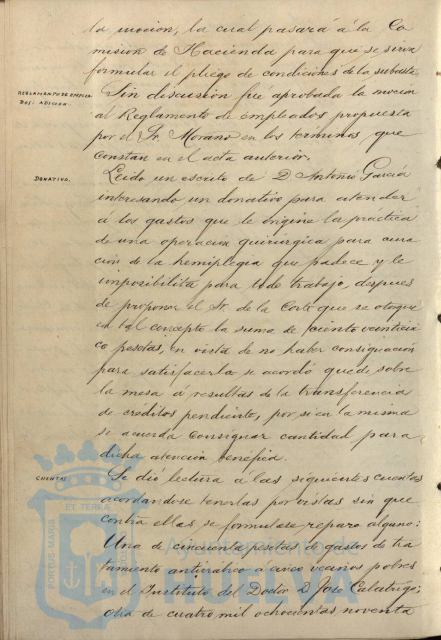 la mocion, la cual pasará á la Co
mision de Hacienda para que se sirva
formular el pliego de condiciones de la subasta.
REGLAMENTO DE EMPLEA
DOS: ADICION.
Sin discusión fue aprobada la mocion
al Reglamento de empleados propuesta
por el Sr. Morano en los terminos que
constan en el acta anterior.
DONATIVO.
Leido un escrito de D. Antonio García
interesando un donativo para atender
á los gastos que le origine la práctica
de una operacion quirurgica para cura
cion de la hemiplegia que padece y le
imposibilita para todo trabajo, despues
de proponer el Sr. de la Corte que se otorgue
en tal concepto la suma de ciento veinticin
co pesetas, en vista de no haber consignación
para satisfacerla se acordó quede sobre
la mesa á resultas de la transferencia
de créditos pendiente, por si en la misma
se acuerda consignar cantidad para
dicha atencion benefica.
CUENTAS
Se dió lectura a las siguientes cuentas
acordandose tenerlas por vistas sin que
contra ellas se formulase reparo alguno:
Una de cincuenta pesetas de gastos de tra
tamiento antirrabico a cinco vecinos pobres
en el Instituto del Doctor D. José
otra de cuatro mil ochocientas noventa
PORTUS MARIS
ET TERRÆ
Ayuntamiento de
HUELVA